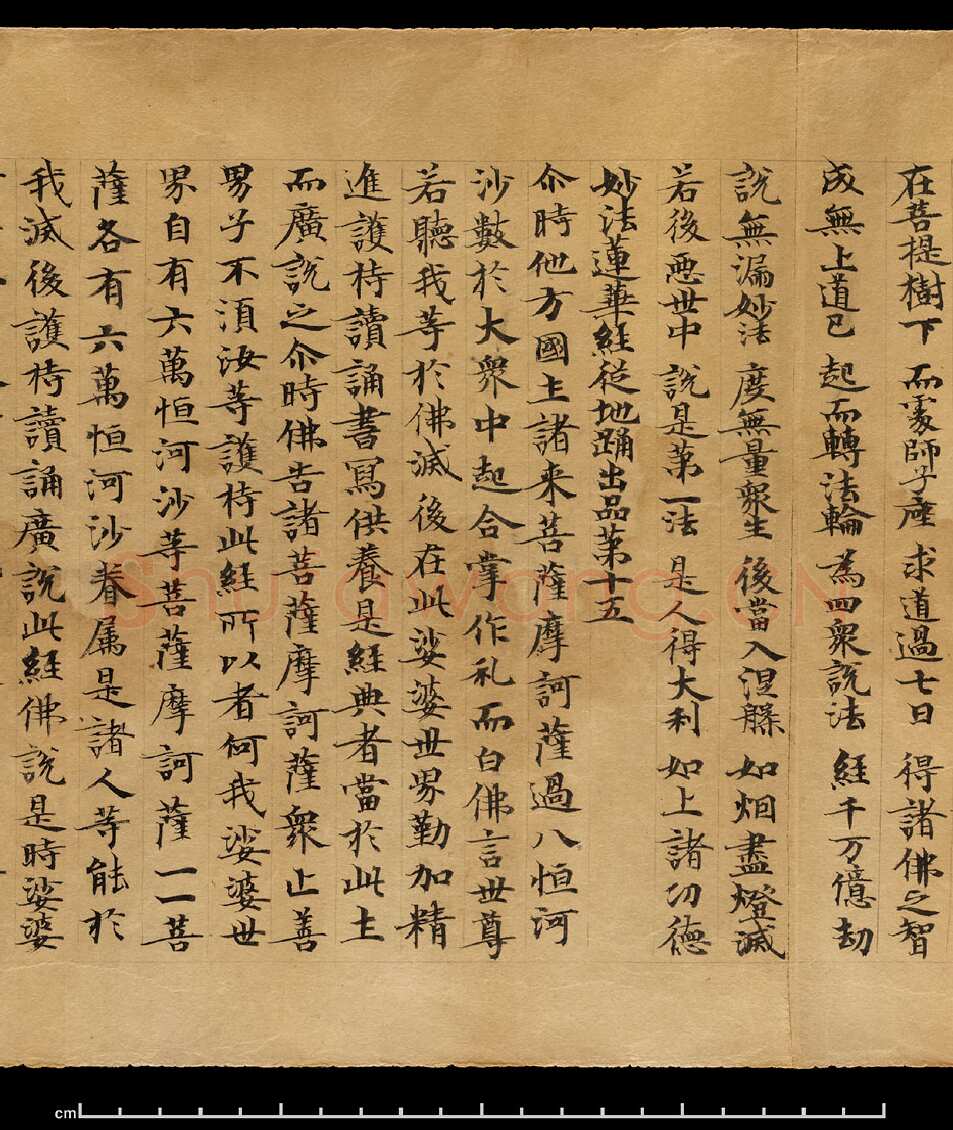 在菩提樹下 而處師子座 求道過七日 得諸佛之智
成無上道已 起而轉法輪 為四衆說法 經千万億劫
說無漏妙法 度無量衆生 後當入涅槃 如烟盡燈滅
若後惡世中 說是第一法 是人得大利 如上諸功德
妙法蓮華經從地踊出品第十五
尒時他方國土諸来菩薩摩訶薩過八恒河
沙數於大衆中起合掌作礼而白佛言世尊
若聽我等於佛滅後在此娑婆世界勤加精
進護持讀誦書寫供養是經典者當於此土
而廣說之尒時佛告諸菩薩摩訶薩衆止善
男子不湏汝等護持此經所以者何我娑婆世
界自有六萬恒河沙等菩薩摩訶薩一一菩
薩各有六萬恒河沙眷属是諸人等能於
我滅後護持讀誦廣說此經佛說是時娑婆
shufawang.cn
cm